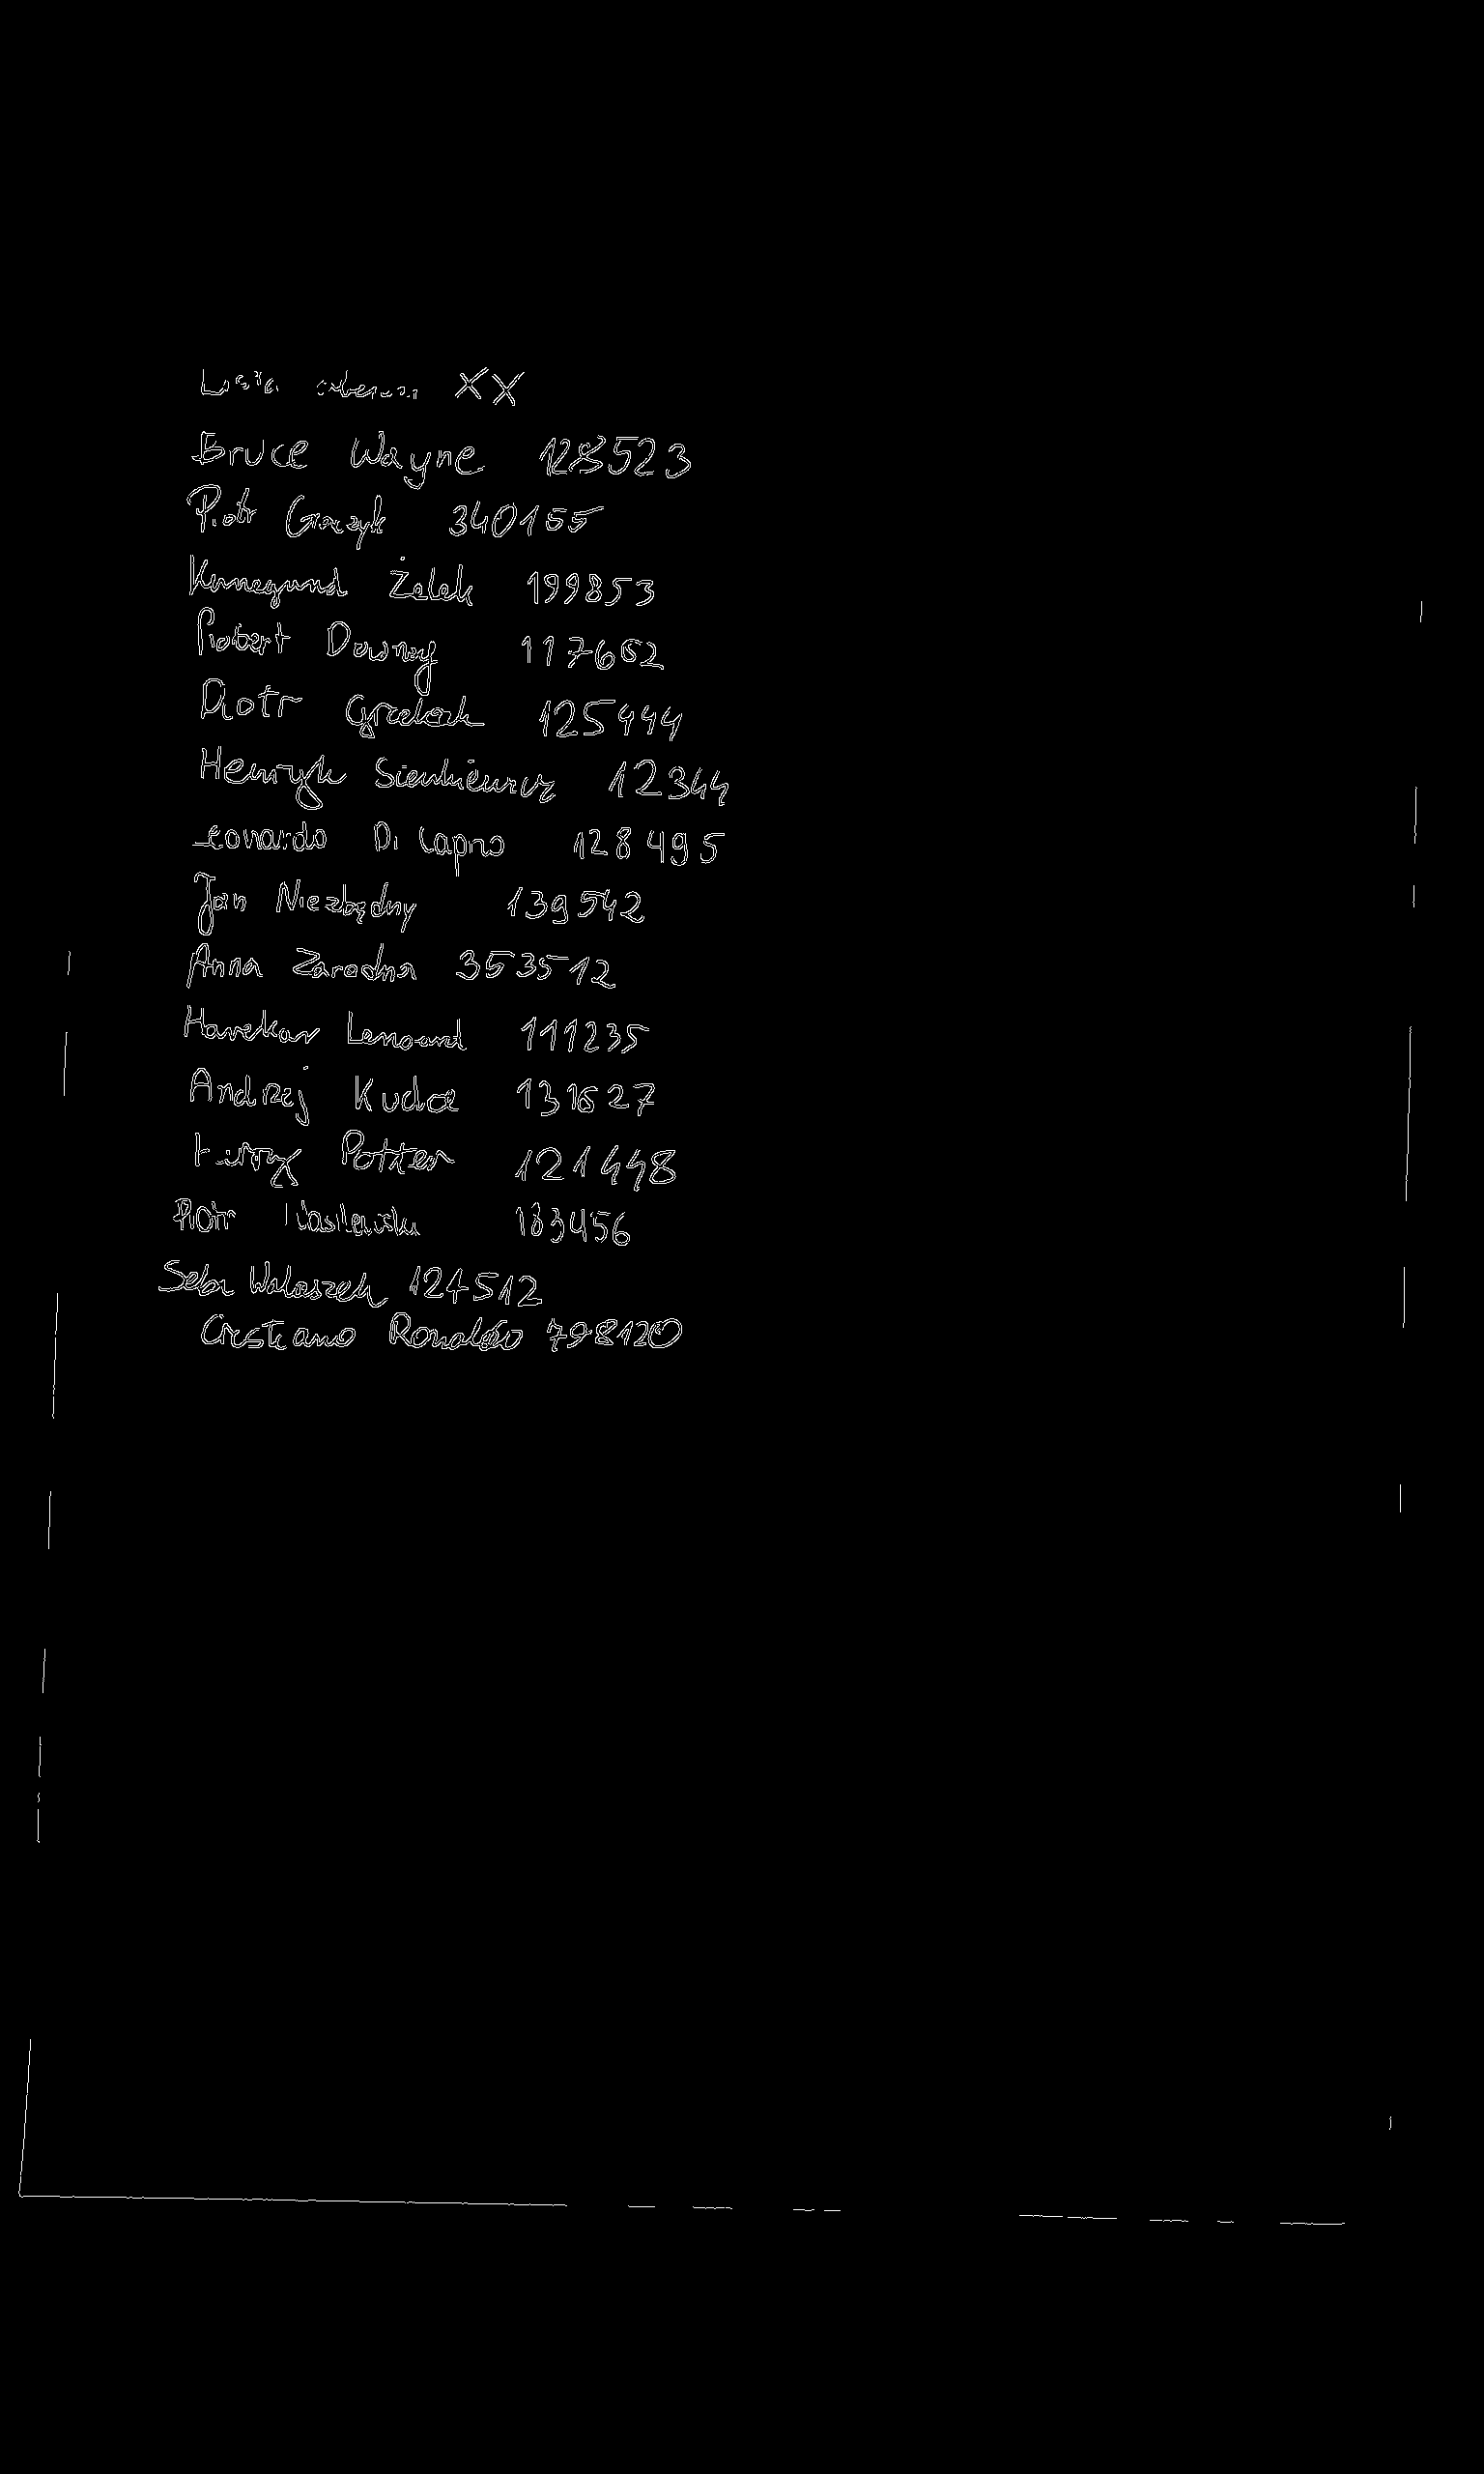 Lista obecności XX
Bruce Wayne 128523
Piotr Graczyk 340155
Kunegund Żelek 199853
Robert Downey 117652
Piotr Grzelak 125444
Henryk Sienkiewicz 12344
Leonardo Di Caprio 128495
Jan Niezbędny 139542
Anna Zaradna 353512
Lenoard 111235
Andrzej Kudla 131627
Potter 121448
Piotr Wasilewski 183456
Seba Walaszek 124512
Crestiano Ronaldo 798120